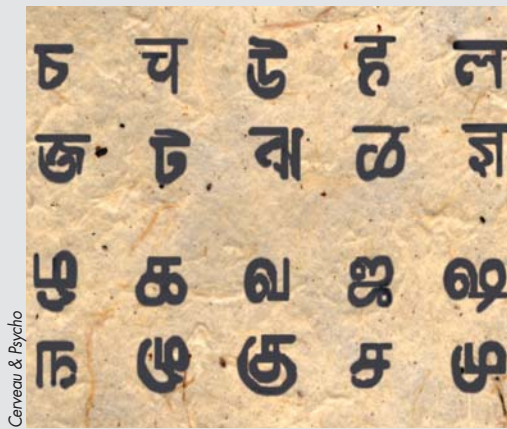 চ च উ ह ल
জ ট ঝ ळ ज्ञ
ழ க வ ஜ ஷ
ந ழு கு ச மு
Cerveau & Psycho